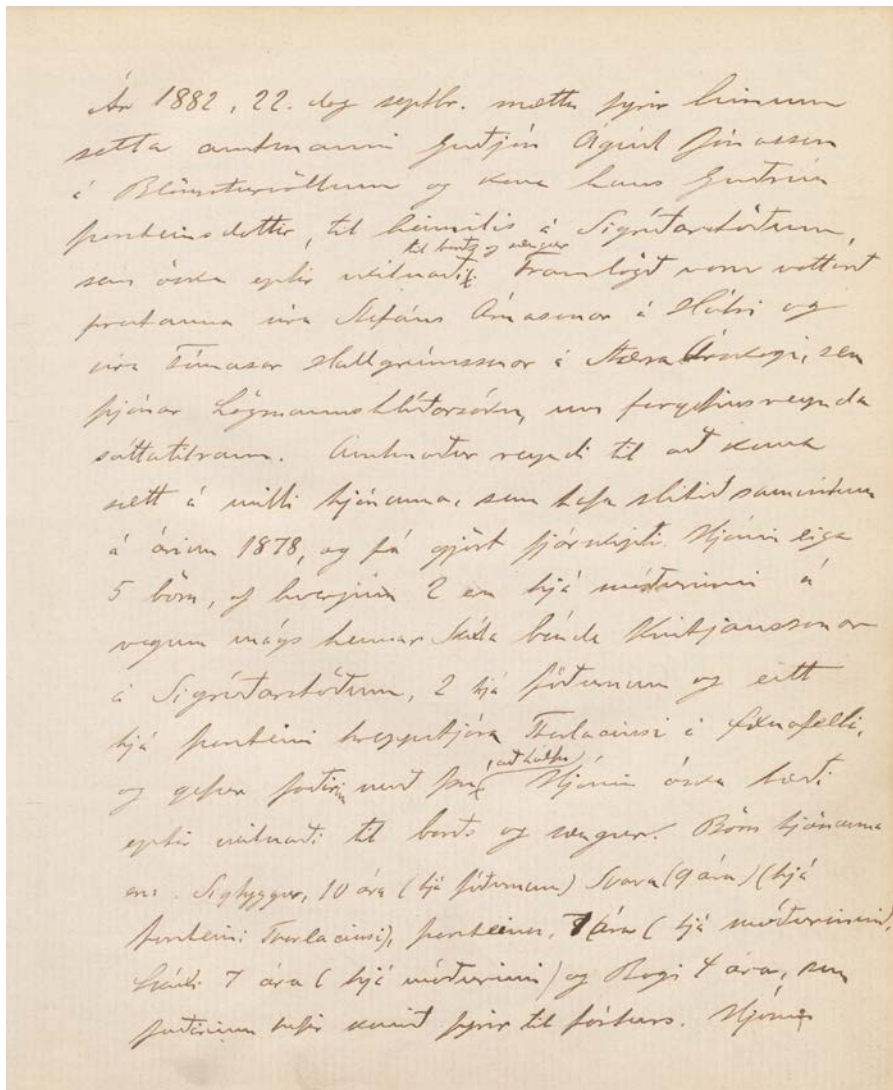 Ár 1882, 22. dag septbr. mættu fyrir hinum
setta amtmanni Guðjón Ágúst Jónasson
á Blómsturvöllum og kona hans Guðrún
þorsteinsdóttir, til heimilis á Sigríðarstöðum,
til borðs og sængur
sem óska eptir skilnaði. Framlögð voru vottorð
prestanna síra Stefáns Árnasonar á Hálsi og
síra Tómasar Hallgrímssonar á Stærra Árskógi, sem
þjónar Lögmannshlíðarsókn, um forgefins reynda
sáttatilraun. Amtmaður reyndi til að koma
sætt á milli hjónanna, sem hafa slitið samvistum
á árinu 1878, og þá gjört fjárskipti. Hjónin eiga
5 börn, af hverjum 2 eru hjá móðurinni á
vegum mágs hennar Skúla bónda Kristjánssonar
á Sigríðarstöðum, 2 hjá föðurnum og eitt
hjá þorsteini hreppstjóra Thorlaciusi í Öxnafelli,
, að hálfu
og gefur faðirinn með því. Hjónin óska bæði
eptir skilnaði til borðs og sængur. Börn hjónanna
eru. Sigtryggur, 10 ára (hjá föðurnum) Svava (9 ára) (hjá
þorsteini Thorlaciusi), þorsteinn, 8 ára (hjá móðurinni),
Skúli 7 ára (hjá móðurinni) og Bogi 4 ára, sem
faðirinn hefir komið fyrir til fósturs. Hjónin